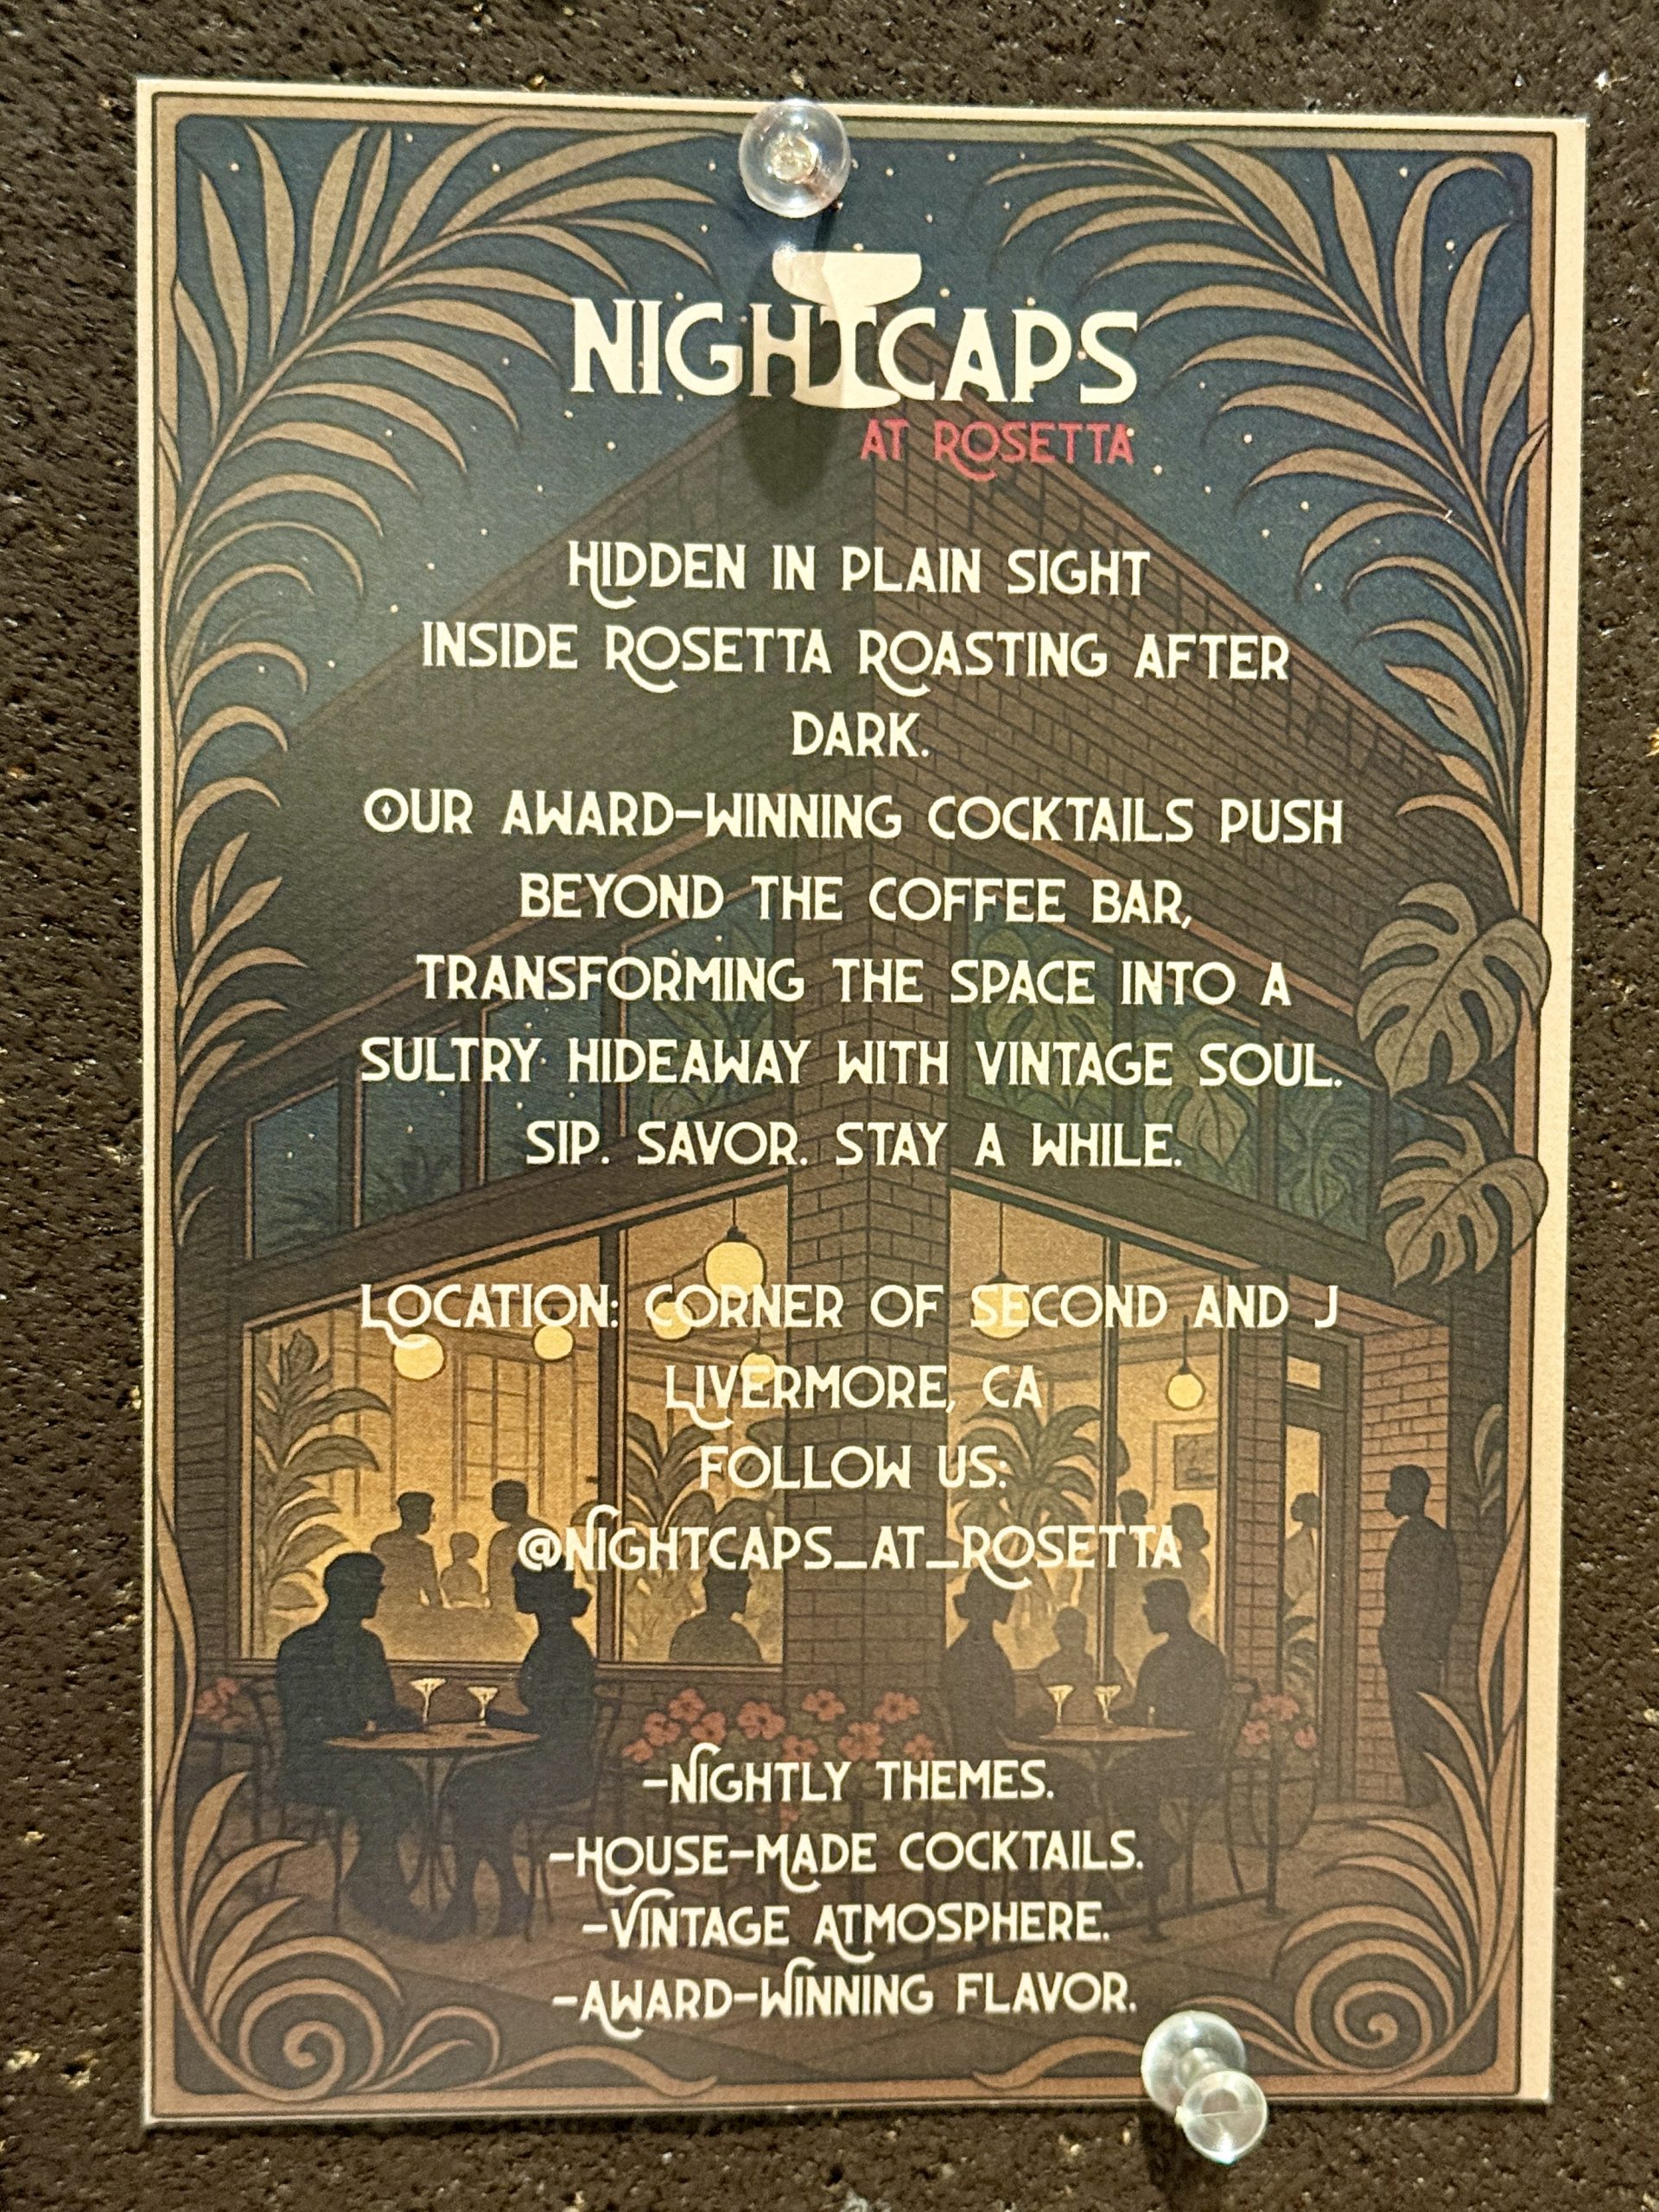 NIGHTCAPS
AT ROSETTA
HIDDEN IN PLAIN SIGHT
INSIDE ROSETTA ROASTING AFTER
DARK.
OUR AWARD-WINNING COCKTAILS PUSH
BEYOND THE COFFEE BAR,
TRANSFORMING THE SPACE INTO A
SULTRY HIDEAWAY WITH VINTAGE SOUL.
SIP. SAVOR. STAY A WHILE.
LOCATION: CORNER OF SECOND AND J
LIVERMORE, CA
FOLLOW US:
@NIGHTCAPS_AT_ROSETTA
-NIGHTLY THEMES.
-HOUSE-MADE COCKTAILS.
-VINTAGE ATMOSPHERE.
-AWARD-WINNING FLAVOR.